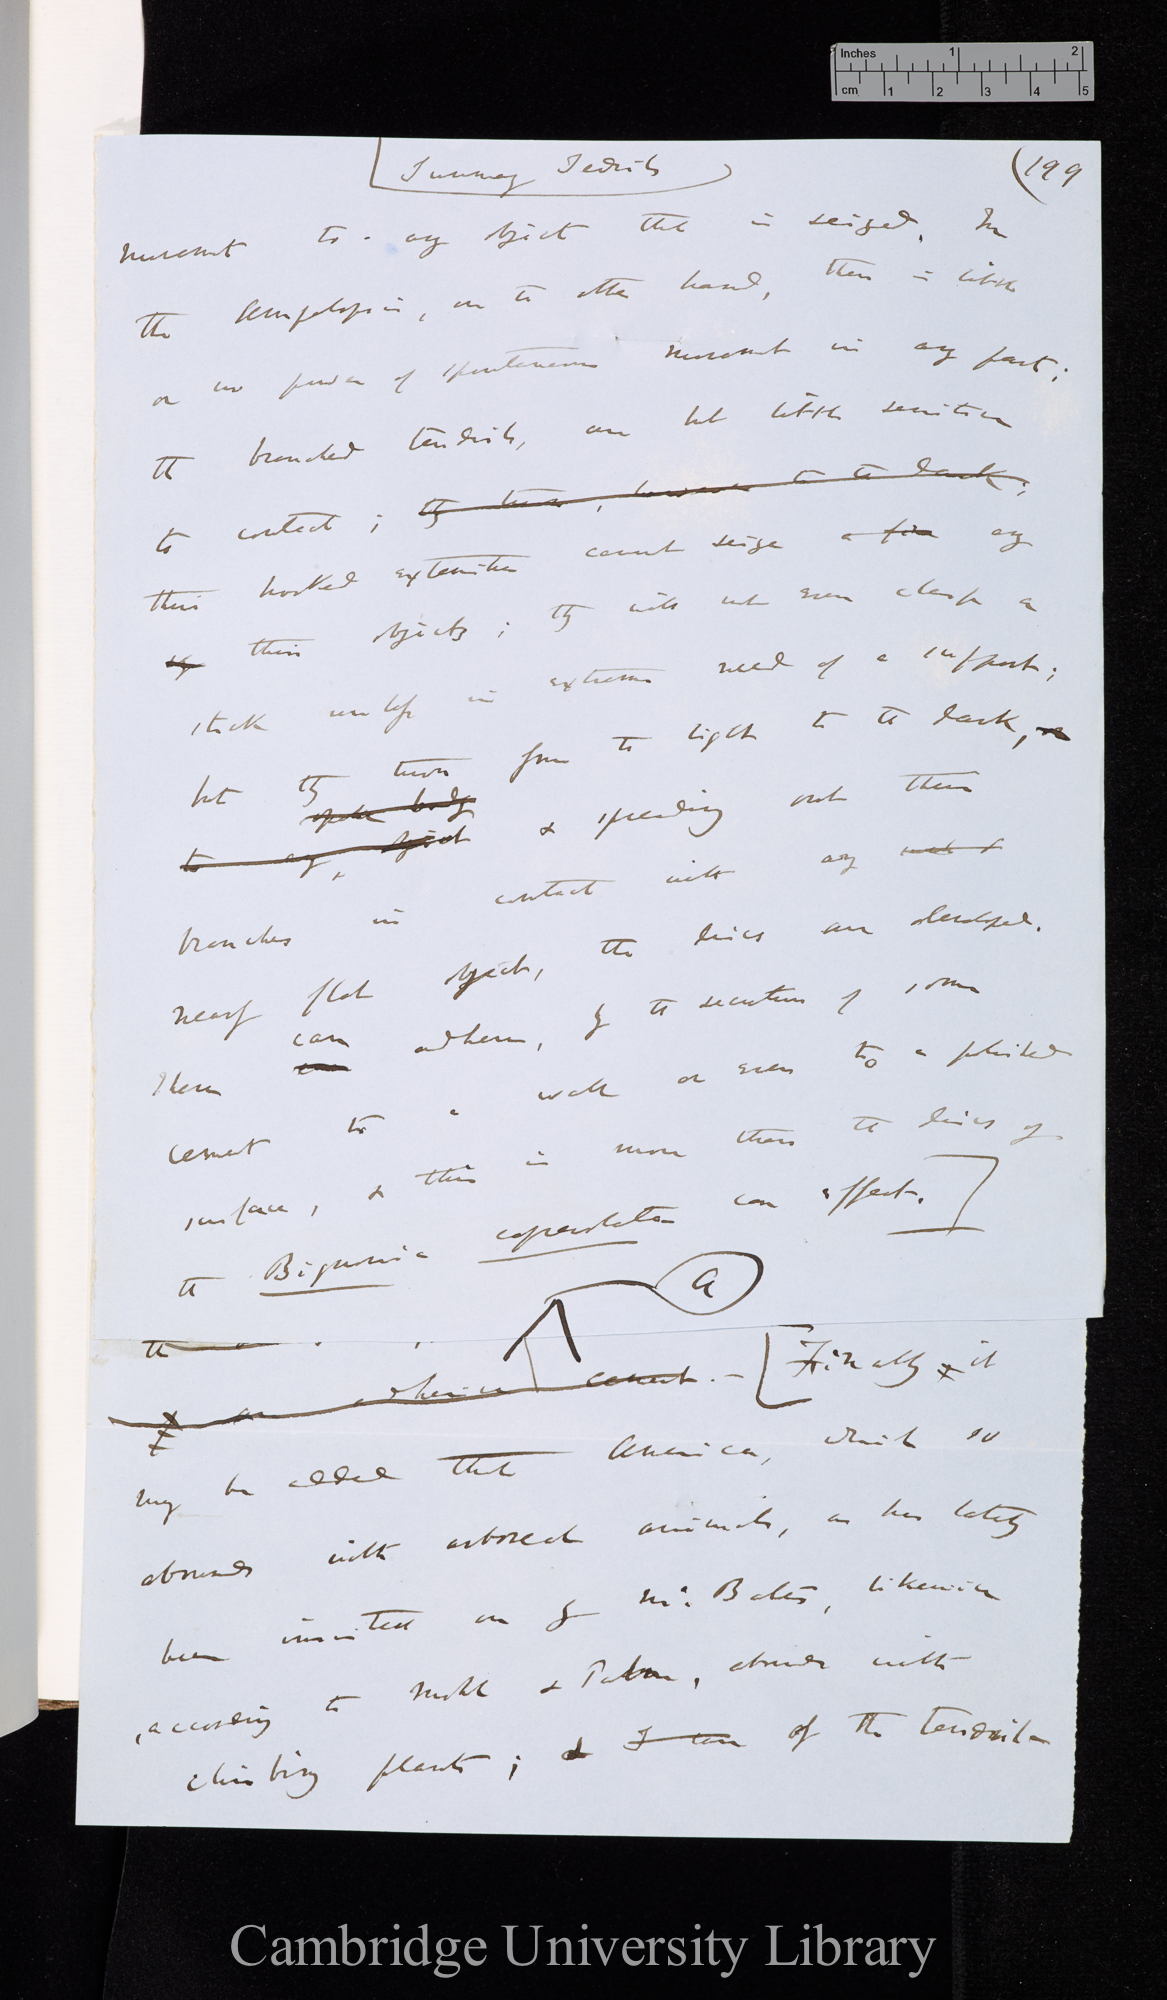 Inches 1 2
cm 1 2 3 4 5
Summary Tendrils
(199
movement to any object that is seized. In
the Ampelopsis, on the other hand, there is little
or no power of spontaneous movement in any part;
the branched tendrils, are but little sensitive
to contact; they turn, towards to the dark;
their hooked extremities cannot seize a fine any
thin objects; they will not even clasp a
stick unless in extreme need of a support;
but they turn from the light to the dark,
opake body
to any, object & spreading out their
branches in contact with any
nearly flat object, the discs are developed.
These can adhere, by the secretion of some
cement to a wall or even to a polished
surface, & this is more than the discs of
the Bignonia capreolata can effect.
a
the
adhesive cement. — Finally it
may be added that America, which so
abounds with arboreal animals, as has lately
been insisted on by Mr. Bates, likewise
, according to Mohl & Palm, abounds with
climbing plants; & of the tendril-
Cambridge University Library